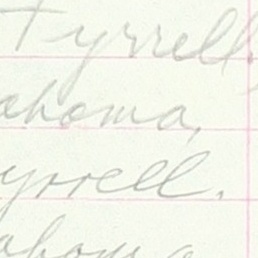 Tyrrell.
ahoma,
yrrell.
ahoma